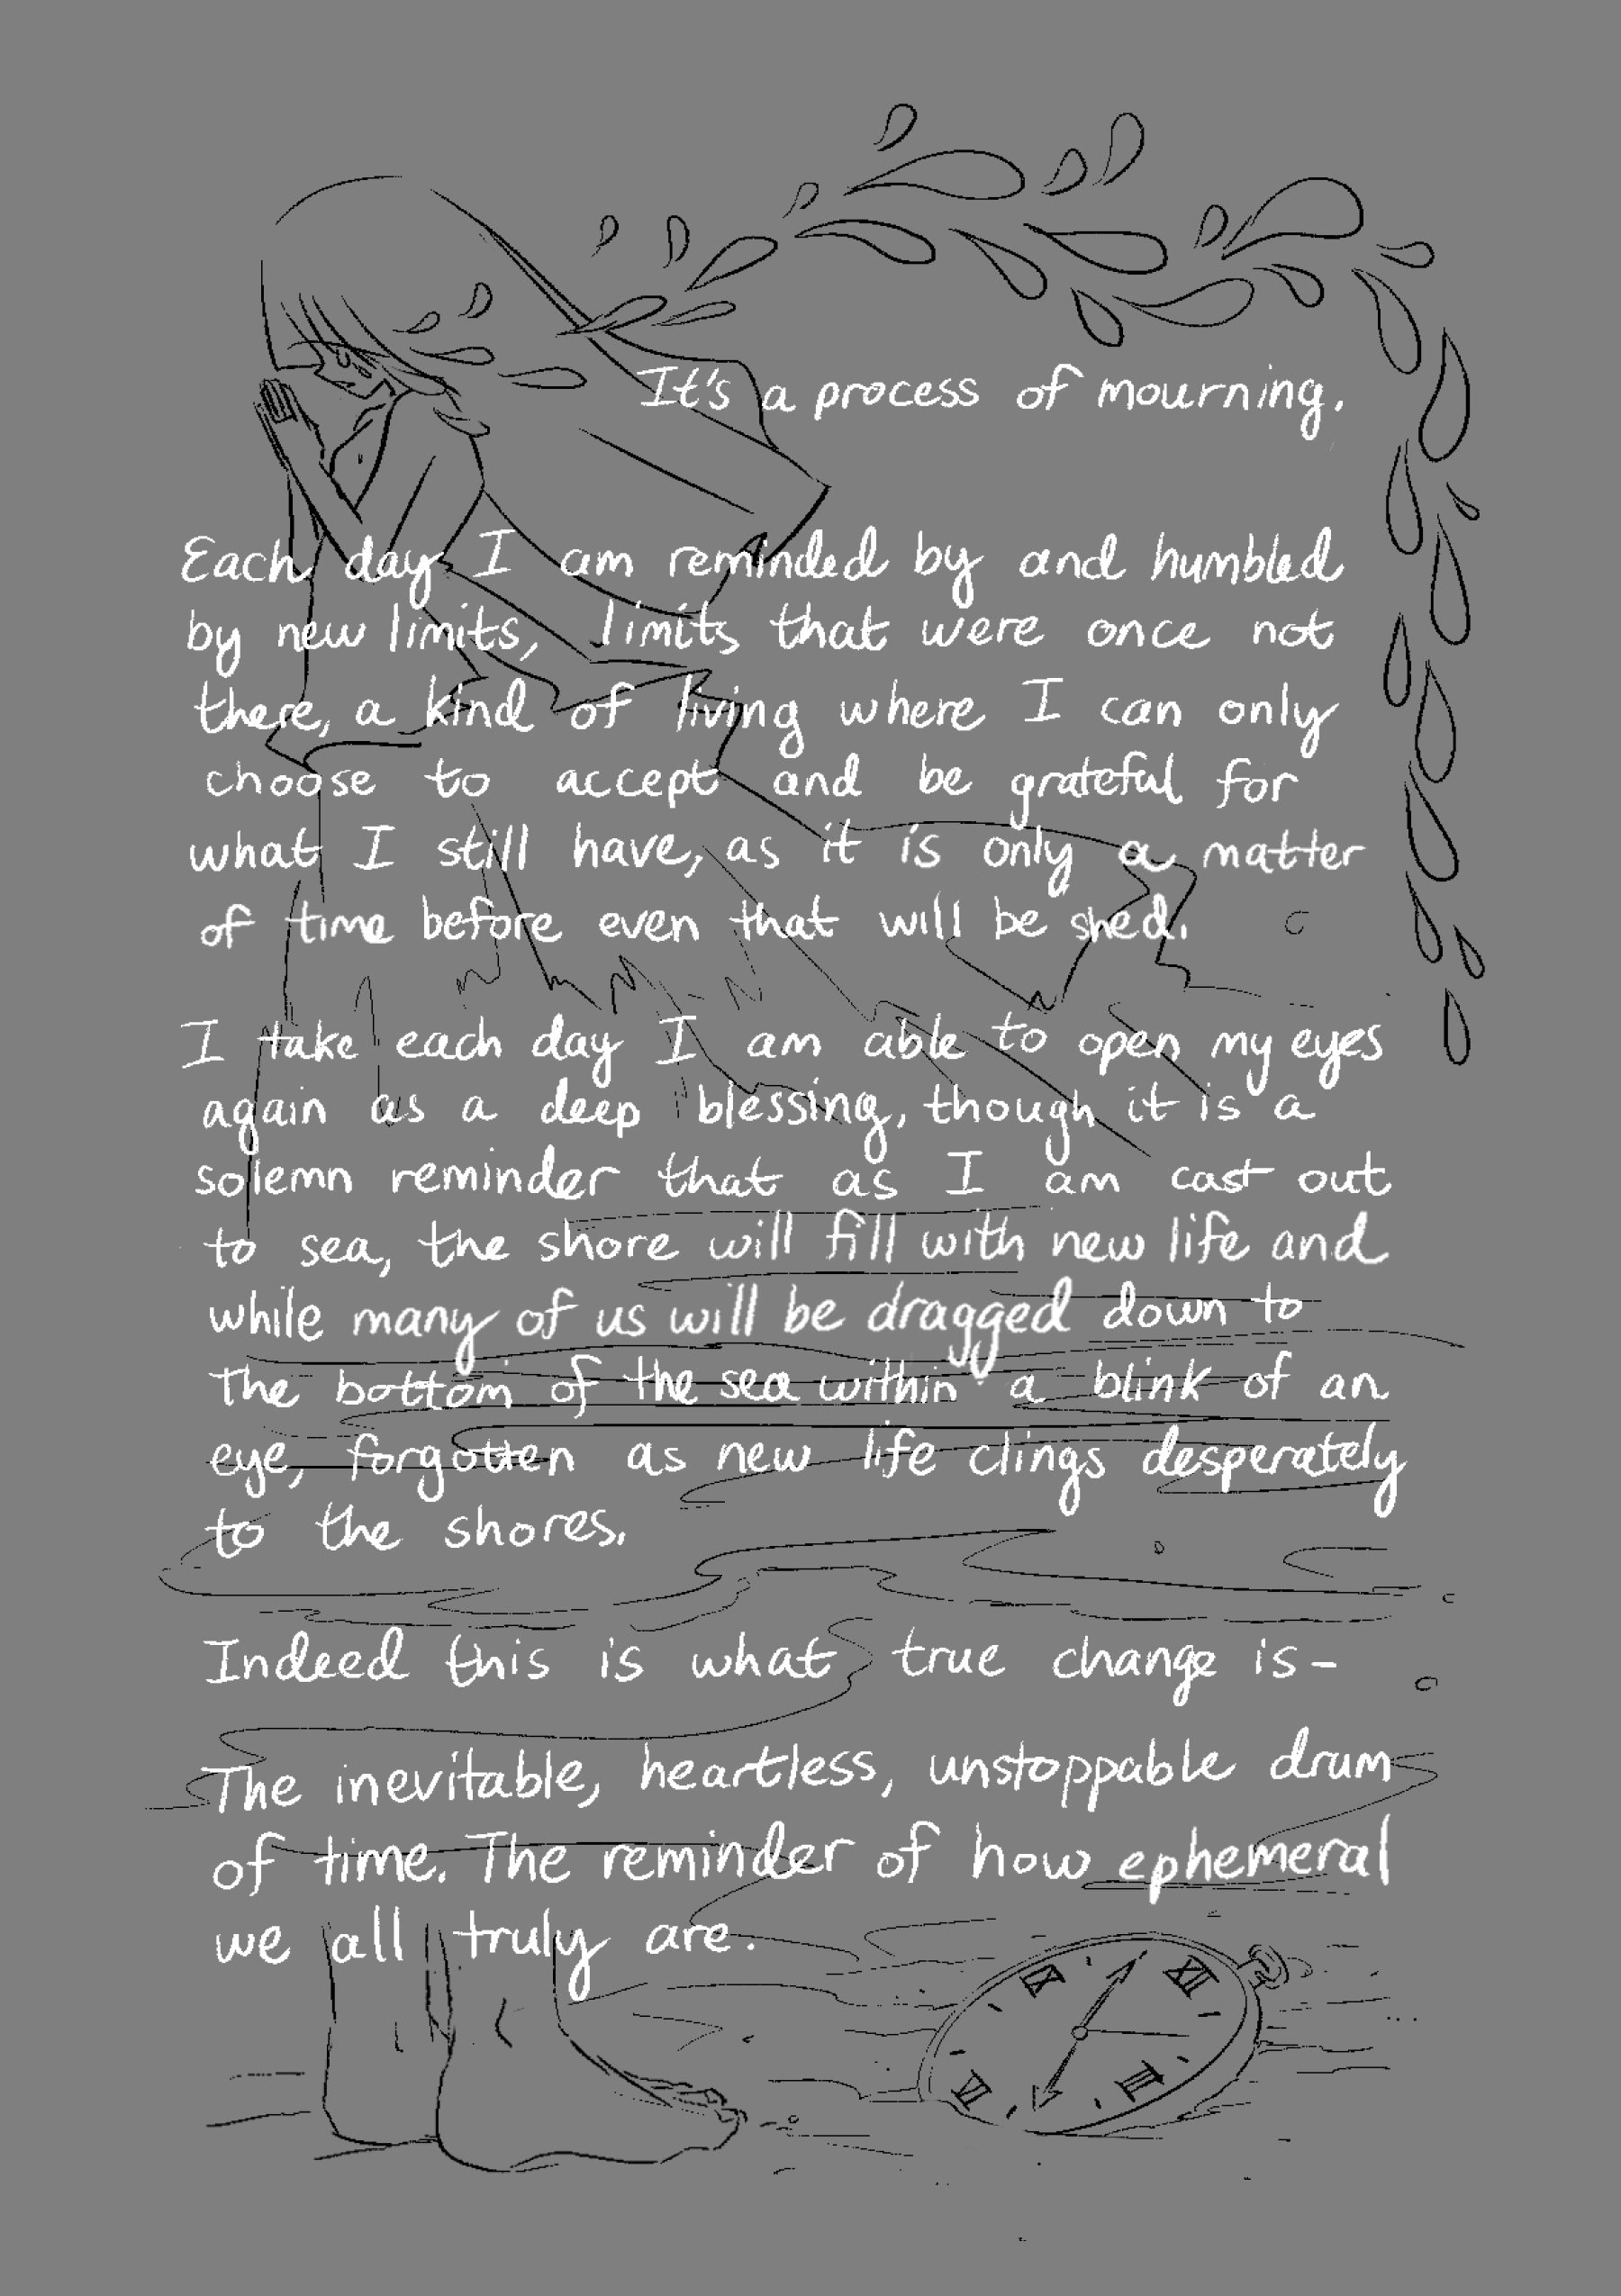 It's a process of mourning.
Each day I am reminded by and humbled
by new limits, limits that were once not
there, a kind of living where I can only
choose to accept and be grateful for
what I still have, as it is only a matter
of time before even that will be shed.
I take each day I am able to open my eyes
again as a deep blessing, though it is a
solemn reminder that as I am cast out
to sea, the shore will fill with new life and
while many of us will be dragged down to
the bottom of the sea within a blink of an
eye, forgotten as new life clings desperately
to the shores.
Indeed this is what true change is-
The inevitable, heartless, unstoppable drum
of time. The reminder of how ephemeral
we all truly are.
IX XII
VI III